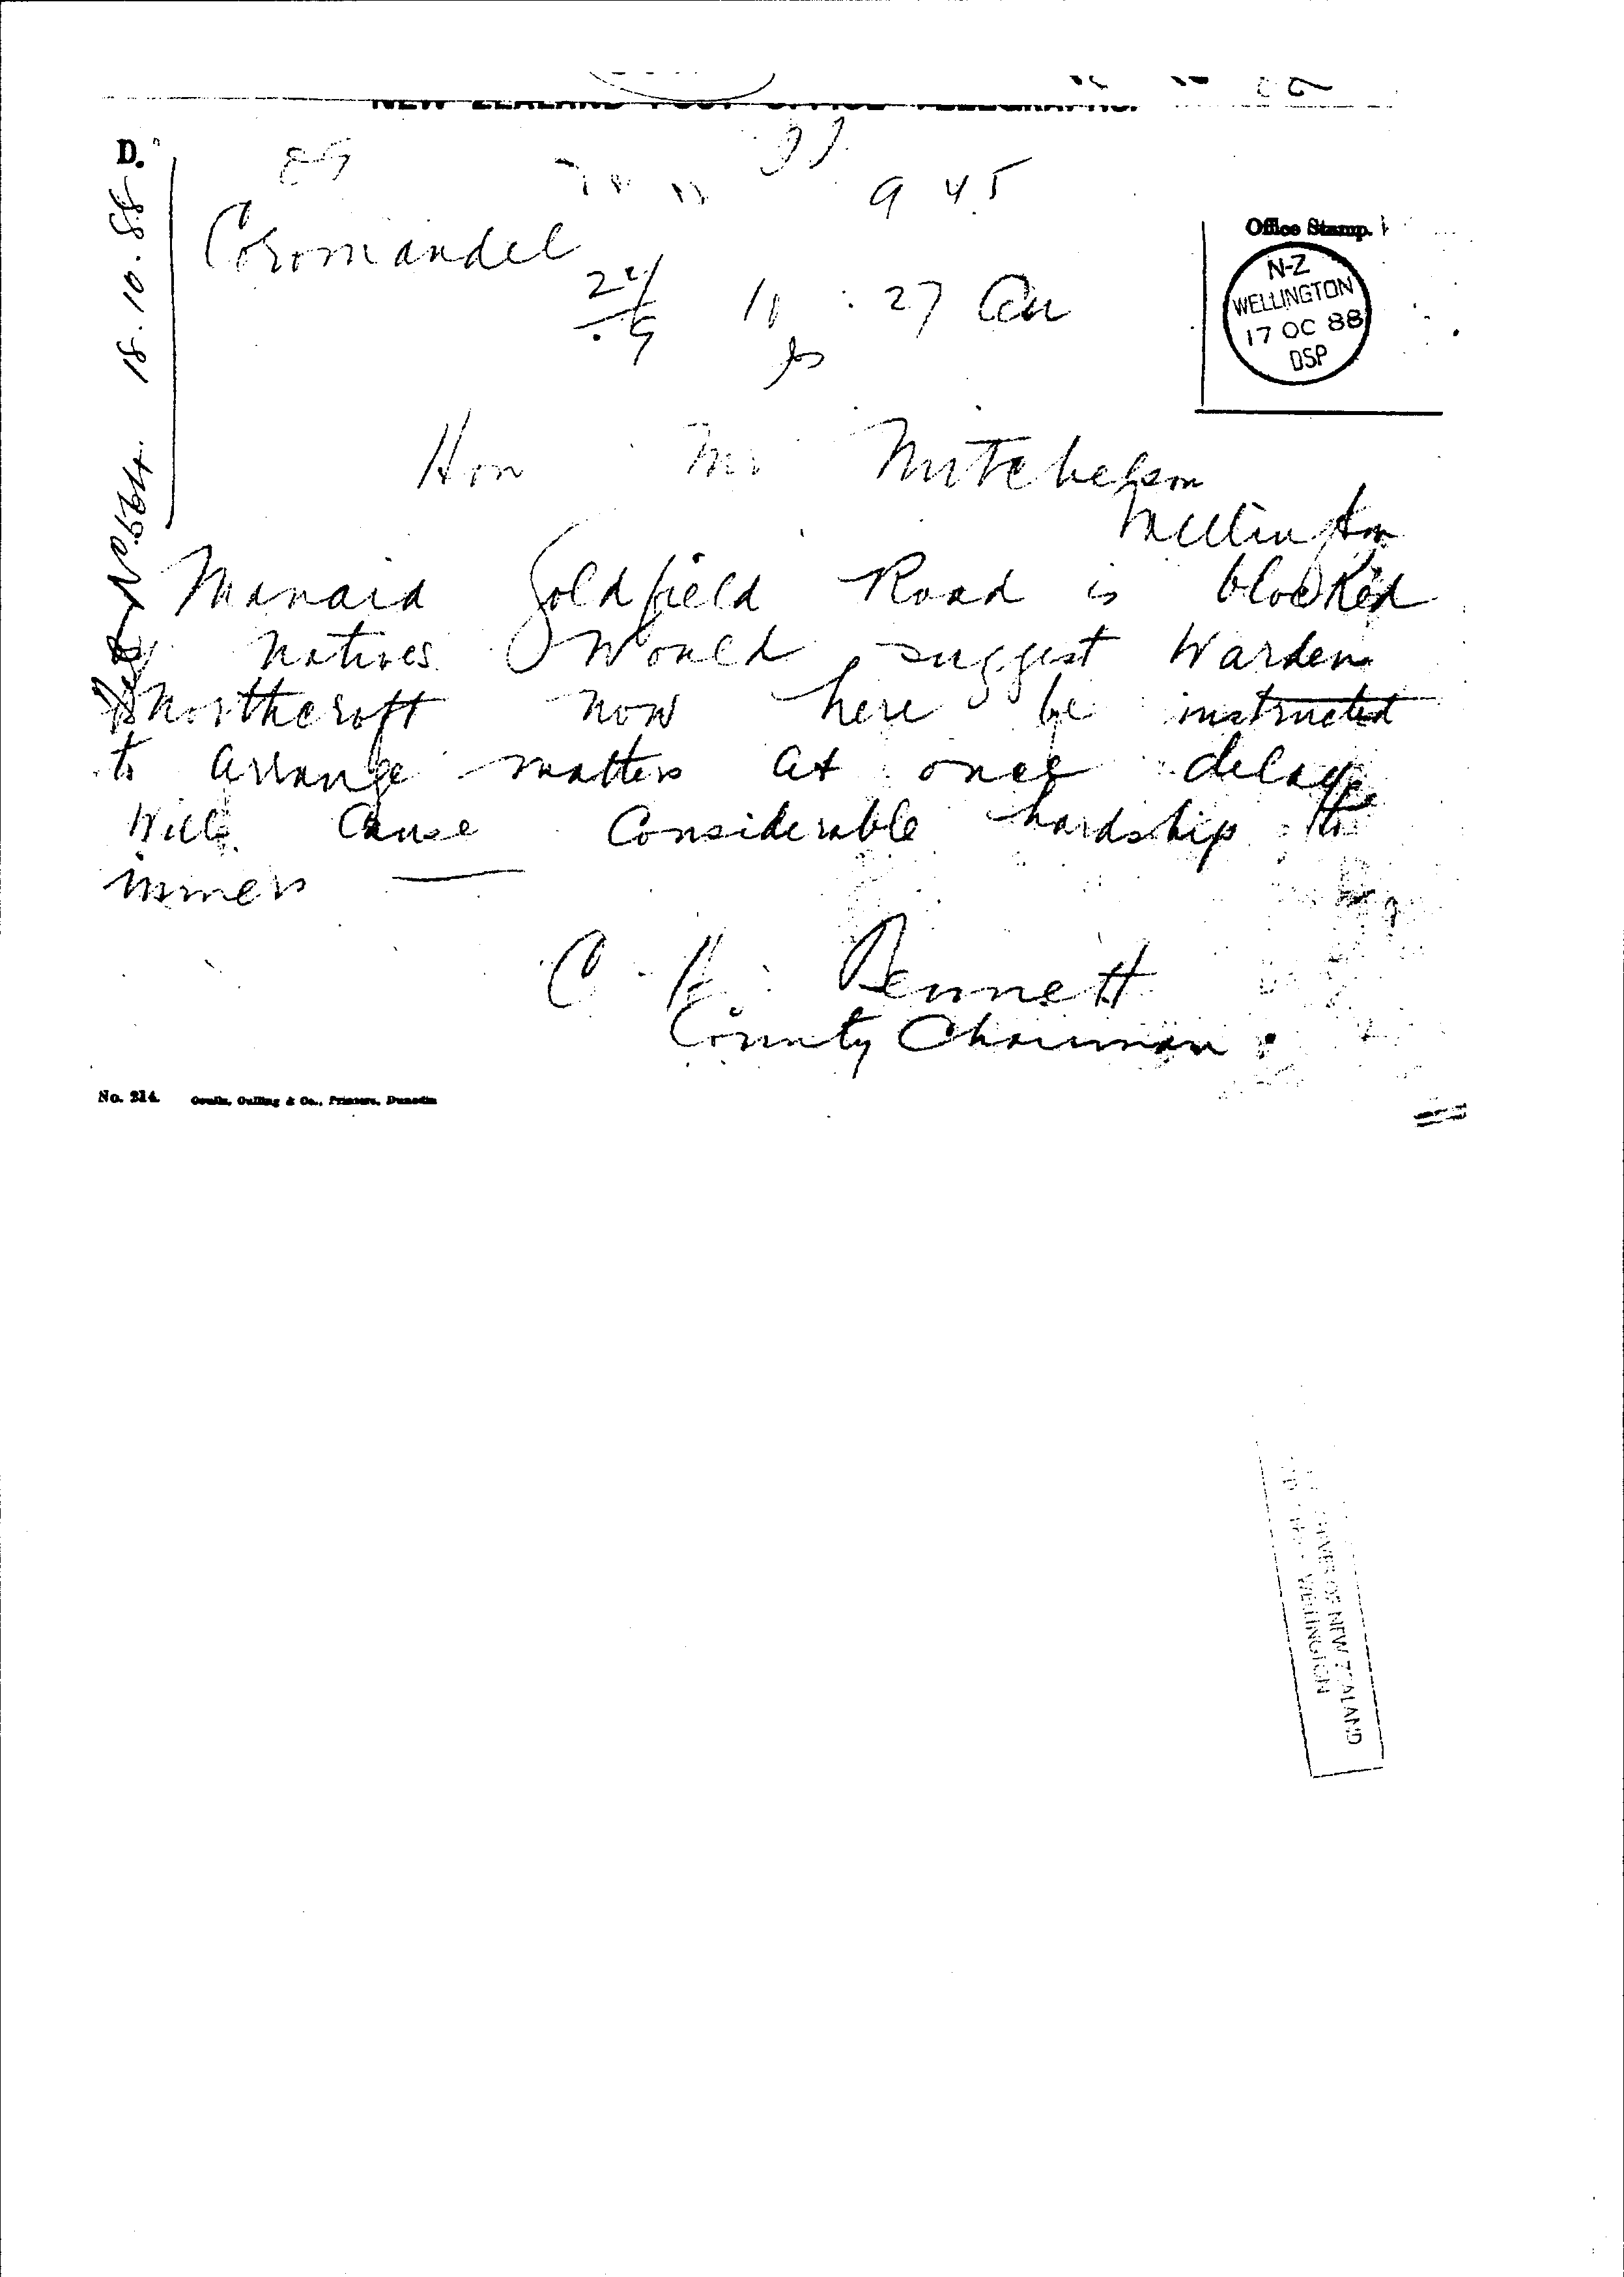 NEW ZEALAND POST OFFICE TELEGRAPHS.
D.
18.10.88
No. 664
9 45
Coromandel
11 : 27 am
Office Stamp.
N-Z
WELLINGTON
17 OC 88
DSP
Hon Mr Mitchelson
Wellington
Manaia Goldfield Road is blocked
by natives Would suggest Warden
Northcroft now here be instructed
to arrange matters at once delay
will cause considerable hardship to
miners —
Bennett
County Chairman
No. 214.
& Co., Printers, Dunedin
OF NEW ZEALAND
WELLINGTON